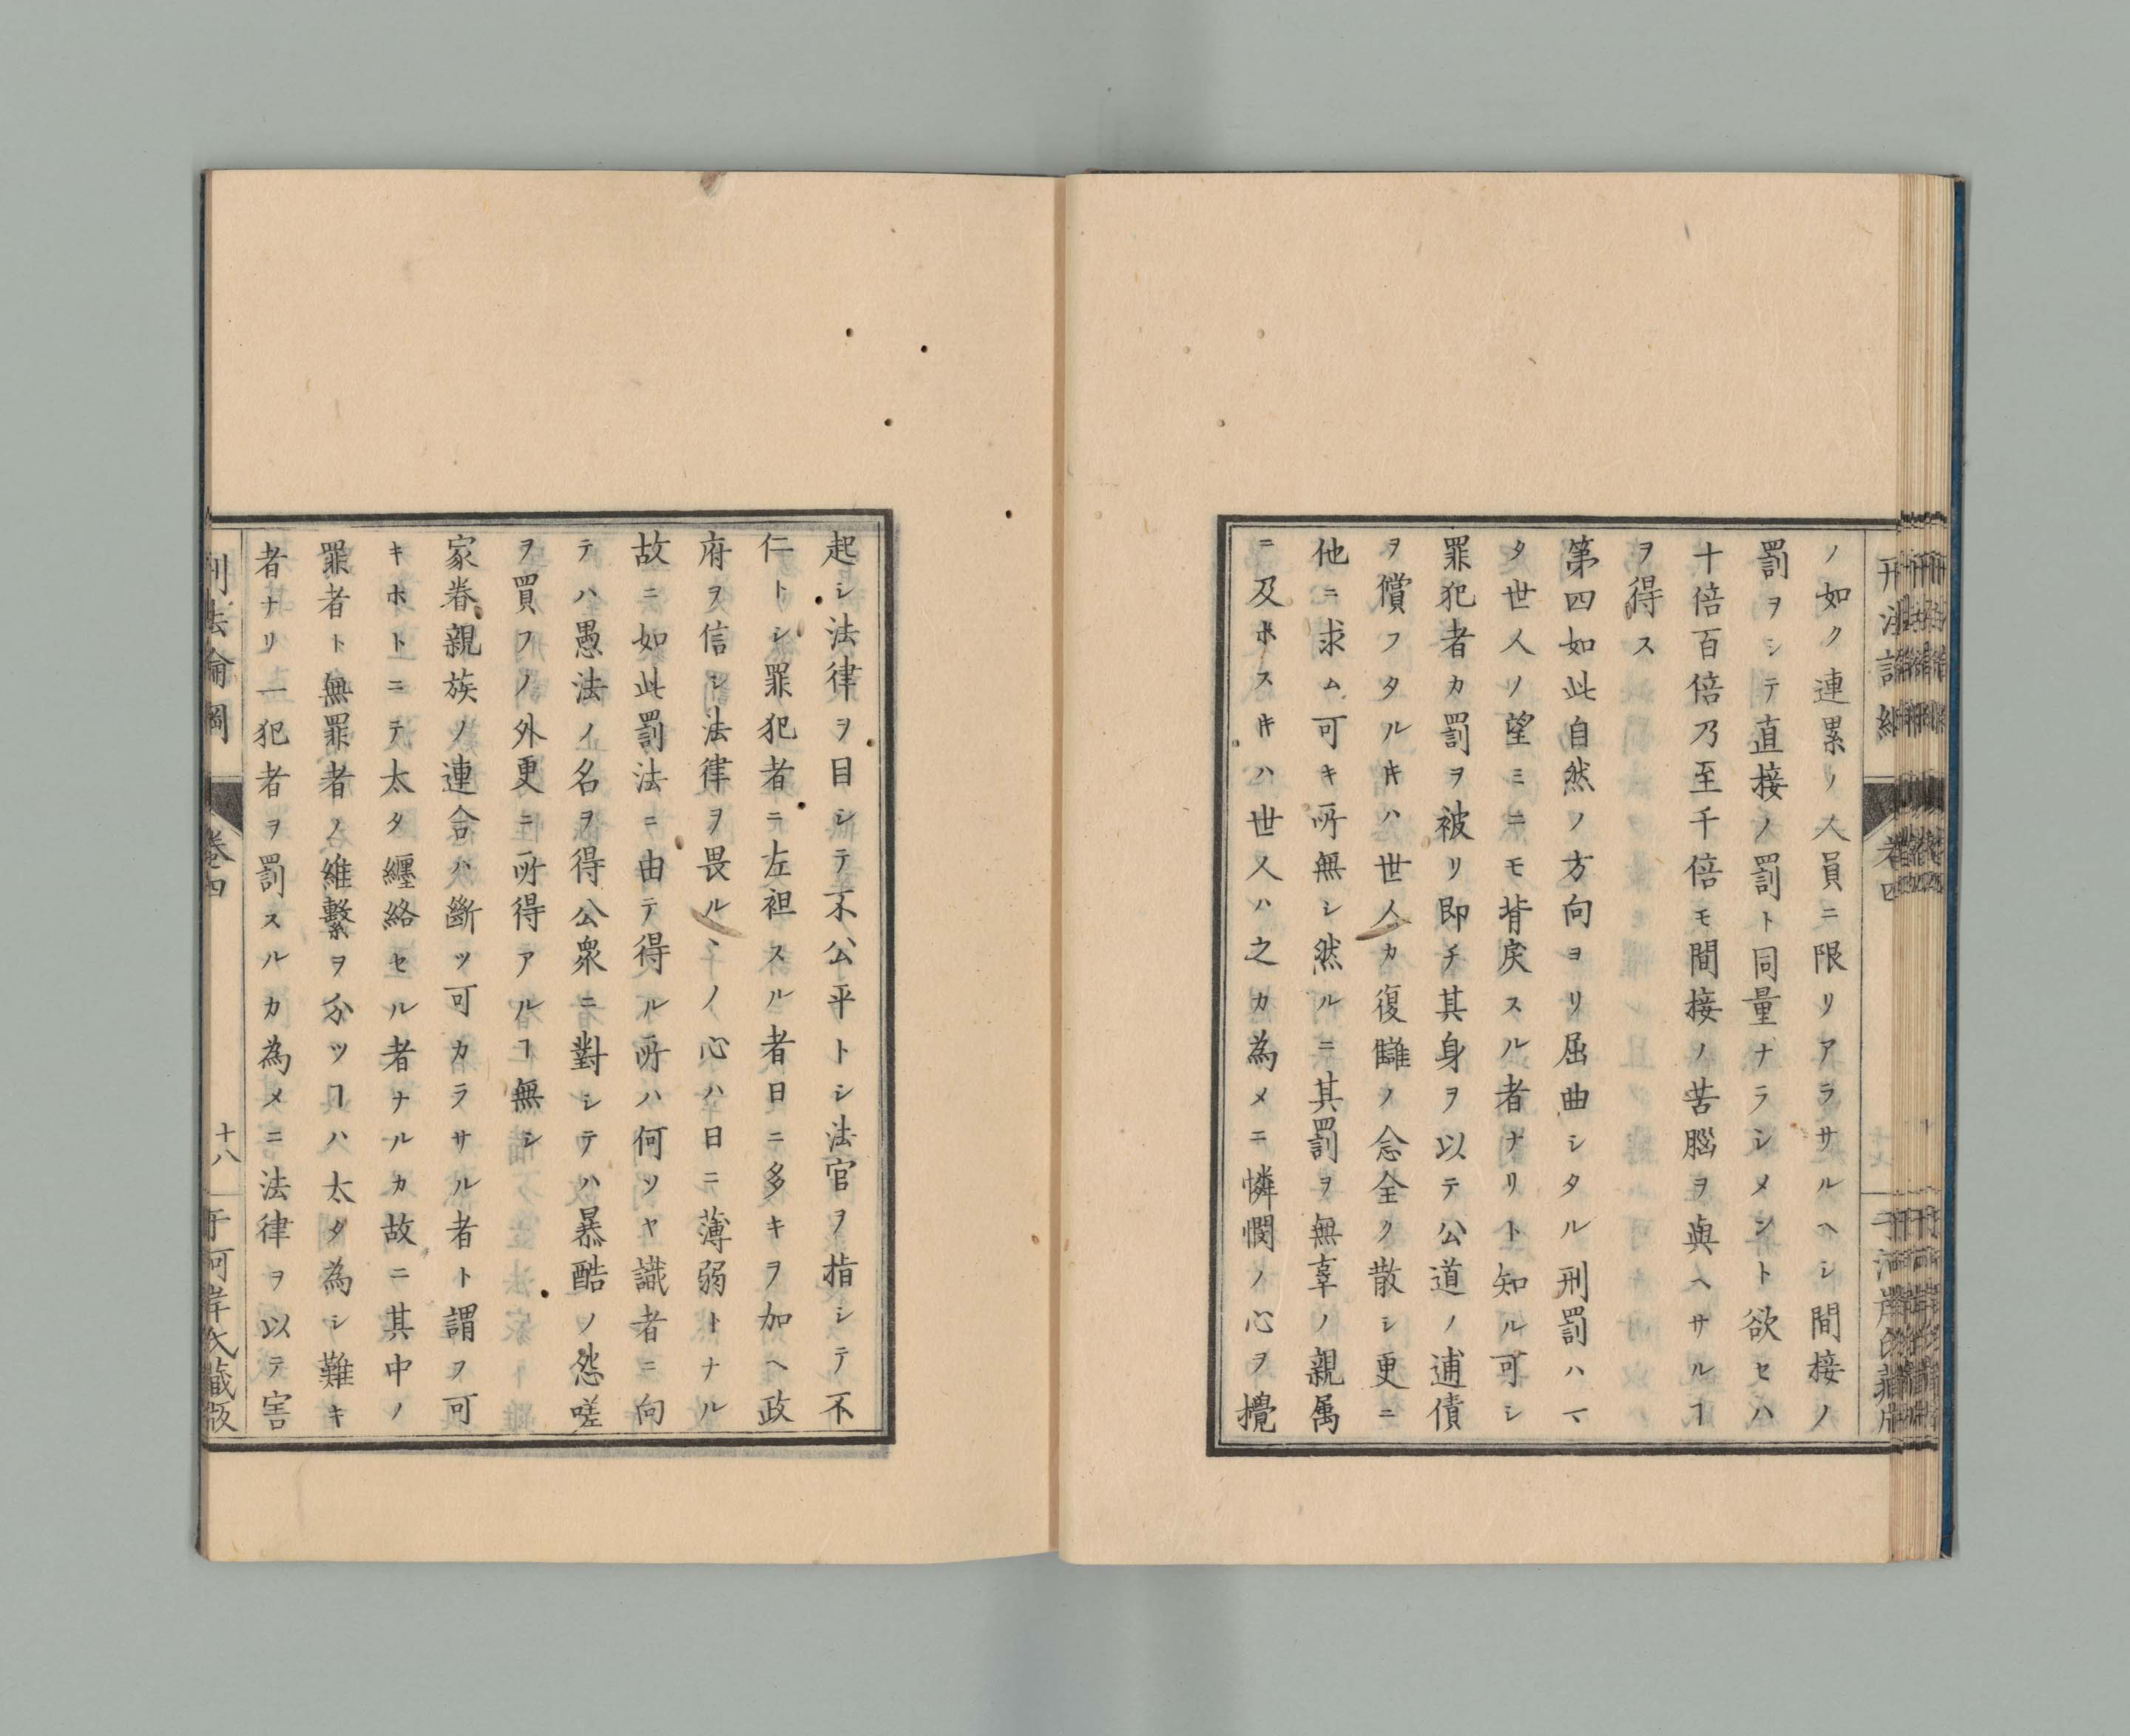 ノ如ク連累ノ人員ニ限リアラサルヘシ間接ノ
罰ヲシテ直接ノ罰ト同量ナラシメント欲セハ
十倍百倍乃至千倍モ間接ノ苦腦ヲ與ヘサルヿ
ヲ得ス
第四如此自然ノ方向ヨリ屈曲シタル刑罰ハマ
タ世人ノ望ミニモ背戻スル者ナリト知ル可シ
罪犯者カ罰ヲ被リ即チ其身ヲ以テ公道ノ逋債
ヲ償フタルキハ世人カ復讎ノ念全ク散シ更ニ
他ニ求ム可キ所無シ然ルニ其罰ヲ無辜ノ親属
ニ及ホスキハ世人ハ之カ為メニ憐憫ノ心ヲ攪
起シ法律ヲ目シテ不公平トシ法官ヲ指シテ不
仁トシ罪犯者ニ左袒スル者日ニ多キヲ加ヘ政
府ヲ信シ法律ヲ畏ルヽノ心ハ日ニ薄弱トナル
故ニ如此罰法ニ由テ得ル所ハ何ソヤ識者ニ向
テハ愚法ノ名ヲ得公衆ニ對シテハ暴酷ノ怨嗟
ヲ買フノ外更ニ所得アルヿ無シ
家眷親族ノ連合ハ斷ツ可カラサル者ト謂フ可
キホトニテ太タ纒絡セル者ナルカ故ニ其中ノ
罪者ト無罪者ノ維繫ヲ分ツヿハ太タ為シ難キ
者ナリ一犯者ヲ罰スルカ為メニ法律ヲ以テ害
刑法論綱
卷四
十八
何岸氏藏版